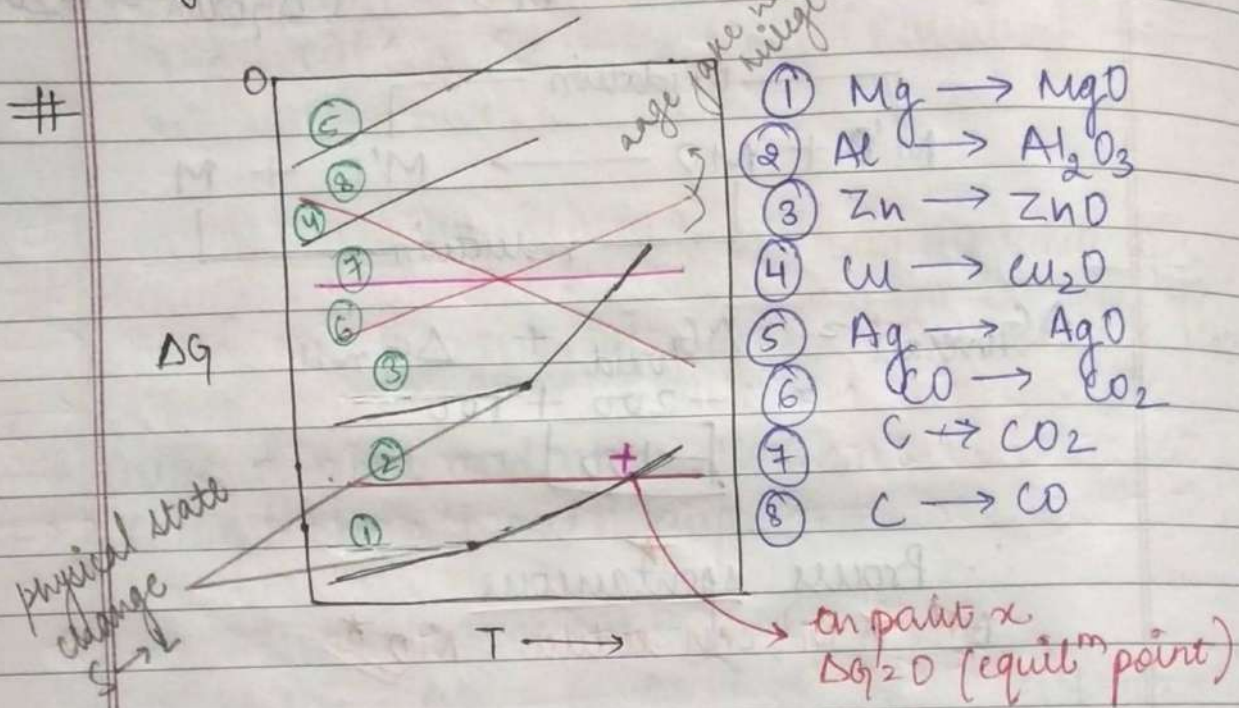 #
O
5
8
4
7
6
3
2
1
ΔG
T →
physical state
change
S → L
aage jake
+
① Mg → MgO
② Al → Al₂O₃
③ Zn → ZnO
④ Cu → Cu₂O
⑤ Ag → AgO
⑥ CO → CO₂
⑦ C → CO₂
⑧ C → CO
on point x
ΔG=0 (equilᵐ point)